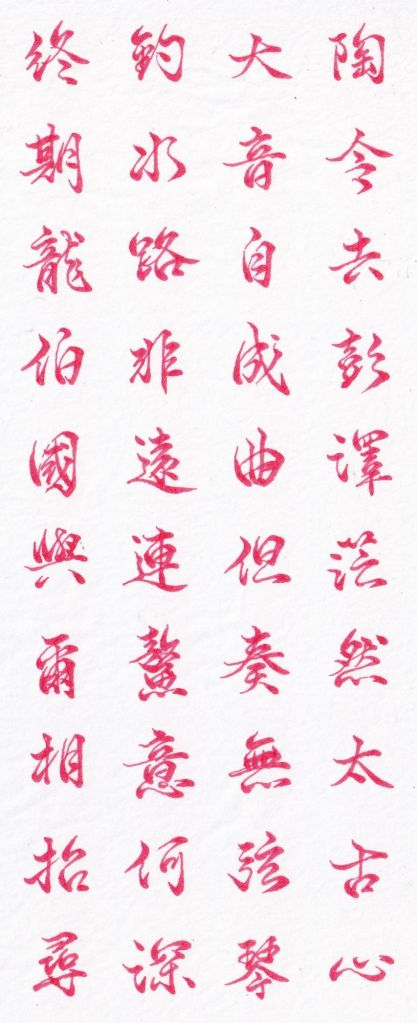 陶令去彭譯茫然太古心
大音自成曲但奏無弦琴
釣水路非遠連鰲意何深
終期龍伯國與爾相招尋